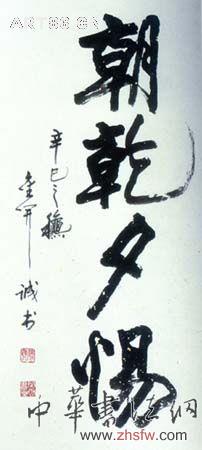 朝乾夕惕
辛巳之穐
金开诚书
中華書法網
www.zhsfw.com